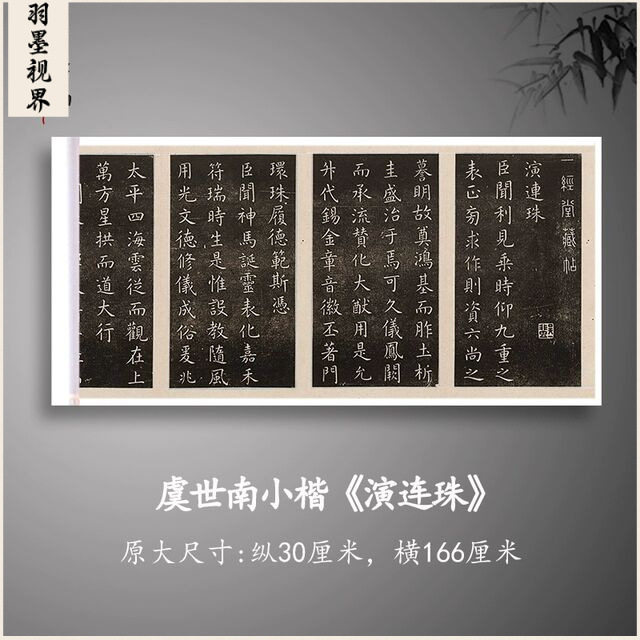 羽墨视界
一經堂藏帖
演連珠
臣聞利見乘時仰九重之
表正芴求作則資六尚之
謩明故奠鴻基而胙土析
圭盛治于焉可久儀鳳闕
而承流賛化大猷用是允
升代錫金章音徽丕著門
環珠履德範斯憑
臣聞神馬誕靈表化嘉禾
符瑞時生是惟設教隨風
用光文德修儀成俗爰兆
太平四海雲從而觀在上
萬方星拱而道大行
虞世南小楷《演连珠》
原大尺寸:纵30厘米，横166厘米